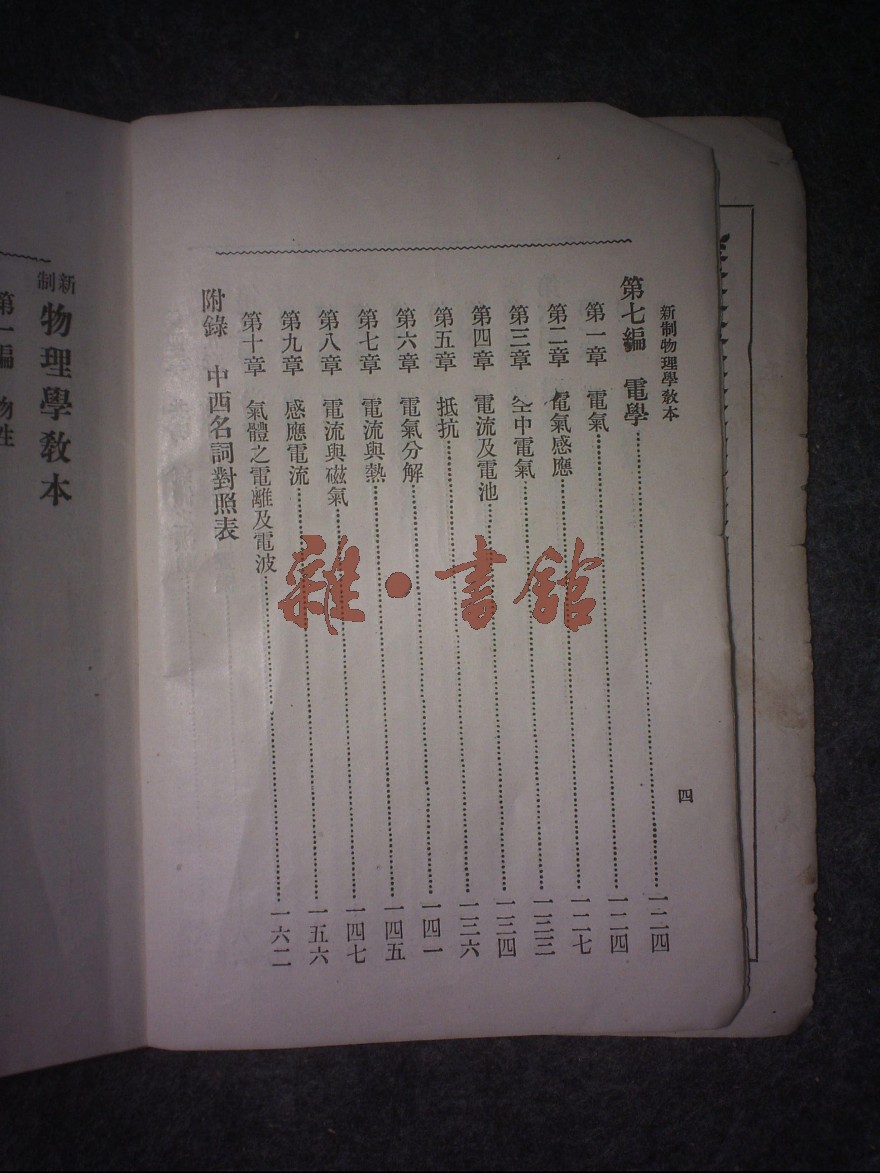 新制物理學教本
四
第七編 電學……一二四
第一章 電氣……一二四
第二章 電氣感應……一二七
第三章 空中電氣……一三三
第四章 電流及電池……一三四
第五章 抵抗……一三六
第六章 電氣分解……一四一
第七章 電流與熱……一四五
第八章 電流與磁氣……一四七
第九章 感應電流……一五六
第十章 氣體之電離及電波……一六二
附錄 中西名詞對照表
新制物理學教本
第一編 物性
雜·書館